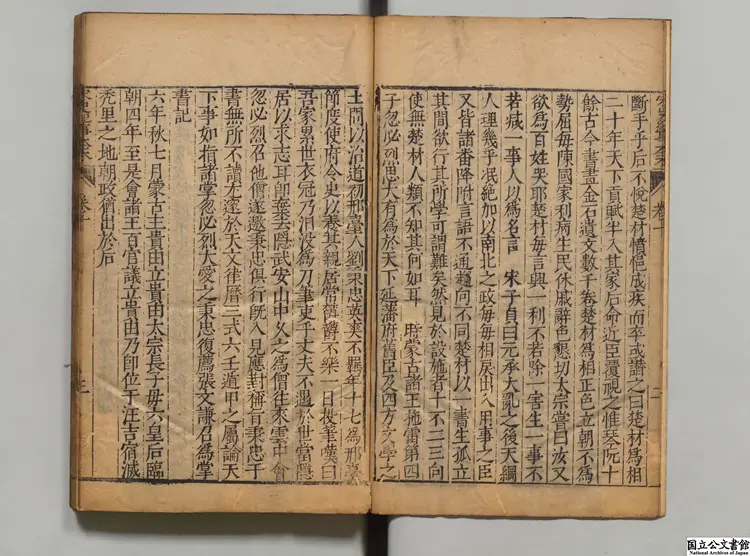 斷手乎后不悅楚材憤悒成疾而卒或譖之曰楚材爲相
二十年天下貢賦半入其家后命近臣覆視之惟琴阮十
餘古今書畫金石遺文數千卷楚材爲相正色立朝不爲
勢屈每陳國家利病生民休戚辭色懇切太宗嘗曰汝又
欲爲百姓哭耶楚材每言與一利不若除一害生一事不
若减一事人以爲名言 宋子貞曰元承大亂之後天綱
人理幾乎泯絶加以南北之政每每相戾出入用事之臣
又皆諸番降附言語不通趨向不同楚材以一書生孤立
其間欲行其所學可謂難矣然見於設施者十不二三向
使無楚材人類不知其何如耳 時蒙古諸王拖雷第四
子忽必烈思大有爲於天下延藩府舊臣及四方文學之
士問以治道初邢臺人劉秉忠英爽不羈年十七爲邢臺
節度使府令史以養其親居常鬱鬱不樂一日投筆嘆曰
吾家累世衣冠乃汨沒爲刀筆吏乎丈夫不遇於世當隱
居以求志耳即棄去隱武安山中久之爲僧往來雲中會
忽必烈召他僧遂邀秉忠俱行旣入見應對稱旨秉忠于
書無所不讀尤邃於天文律曆三式六壬遁甲之屬論天
下事如指諸掌忽必烈大愛之秉忠復薦張文謙召爲掌
書記
六年秋七月蒙古主貴由立貴由太宗長子母六皇后臨
朝四年至是會諸王百官議立貴由乃即位于汪吉宿滅
禿里之地朝政猶出於后
卷十
二
卷十
三
国立公文書館
National Archives of Japan